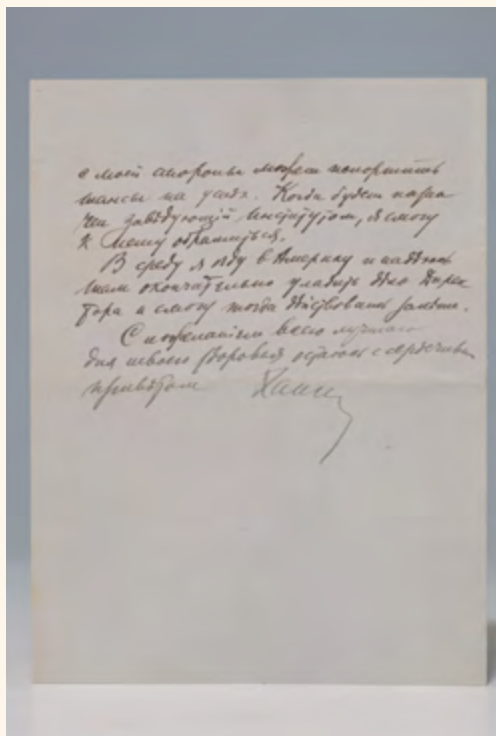 с моей стороны может испортить
шансы на успѣх. Когда будет назна
чен завѣдующій Институтом, я смогу
к нему обратиться.
В среду я ѣду в Америку и надѣюсь
там окончательно уладить дѣло Дирек
тора и смогу тогда дѣйствовать
С пожеланіем всего лучшаго
для вашего здоровья остаюсь с сердечным
привѣтом